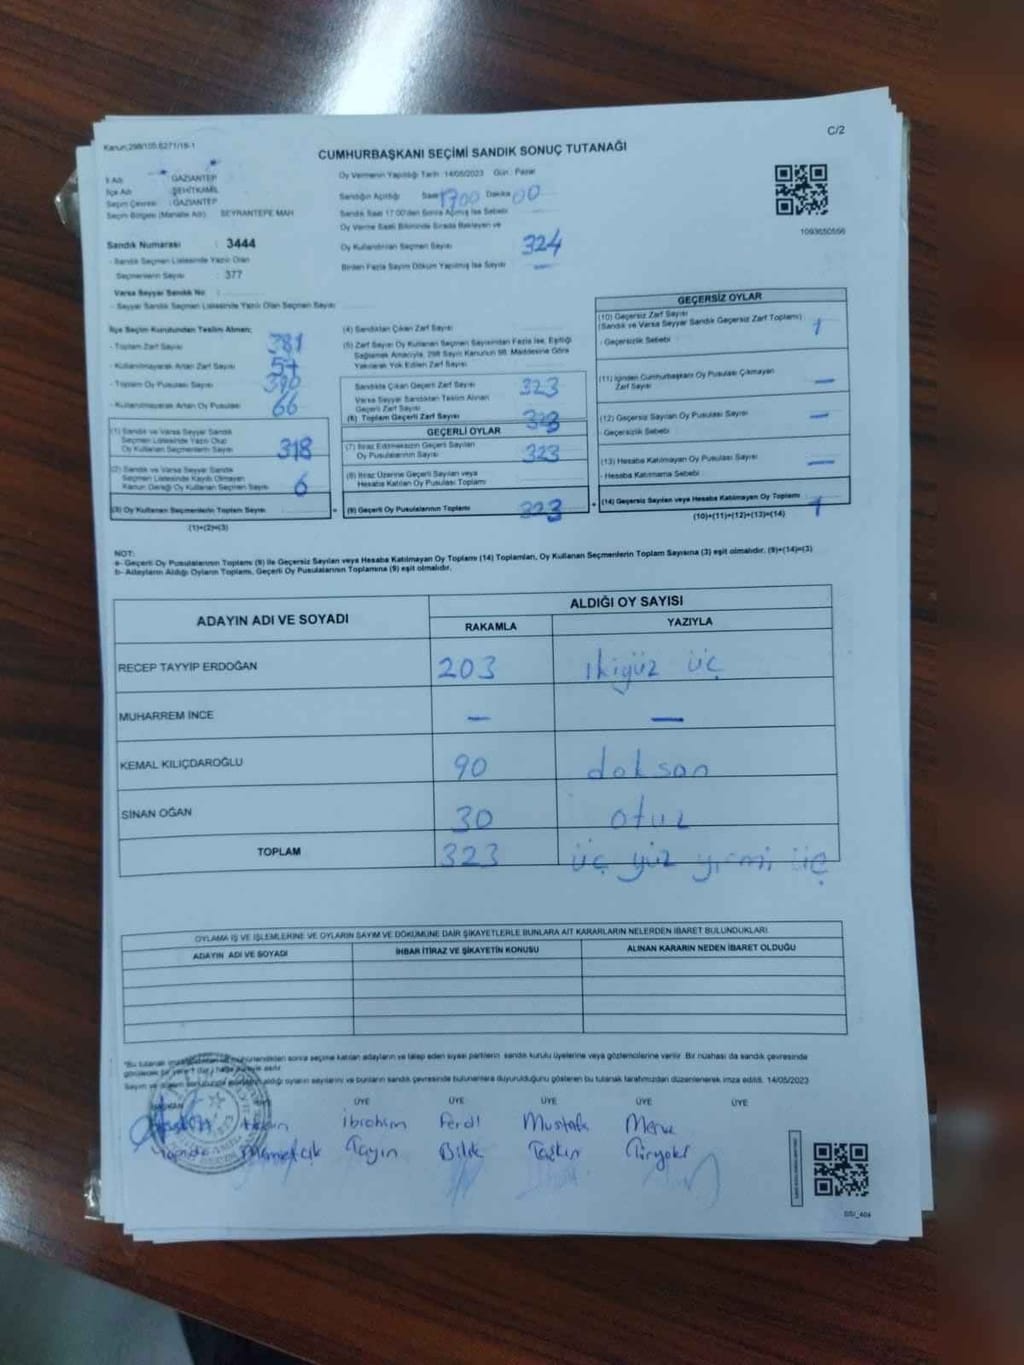 Kanun:298/105.6271/19-1
C/2
CUMHURBAŞKANI SEÇİMİ SANDIK SONUÇ TUTANAĞI
İl Adı : GAZİANTEP
İlçe Adı : ŞEHİTKAMİL
Seçim Çevresi : GAZİANTEP
Seçim Bölgesi (Mahalle Adı) : SEYRANTEPE MAH
Sandık Numarası : 3444
- Sandık Seçmen Listesinde Yazılı Olan
Seçmenlerin Sayısı : 377
Varsa Seyyar Sandık No :
- Seyyar Sandık Seçmen Listesinde Yazılı Olan Seçmen Sayısı :
Oy Vermenin Yapıldığı Tarih :14/05/2023 Gün : Pazar
Sandığın Açıldığı Saat 1700 Dakika 00
Sandık Saat 17:00'den Sonra Açılmış İse Sebebi
Oy Verme Saati Bitiminde Sırada Bekleyen ve
Oy Kullandırılan Seçmen Sayısı 324
Birden Fazla Sayım Döküm Yapılmış İse Sayısı —
1093650556
İlçe Seçim Kurulundan Teslim Alınan;
- Toplam Zarf Sayısı 381
- Kullanılmayarak Artan Zarf Sayısı 57
- Toplam Oy Pusulası Sayısı 390
- Kullanılmayarak Artan Oy Pusulası 66
(1) Sandık ve Varsa Seyyar Sandık
Seçmen Listesinde Yazılı Olup
Oy Kullanan Seçmenlerin Sayısı 318
(2) Sandık ve Varsa Seyyar Sandık
Seçmen Listesinde Kayıtlı Olmayan
Kanun Gereği Oy Kullanan Seçmen Sayısı 6
(3) Oy Kullanan Seçmenlerin Toplam Sayısı
(1)+(2)=(3)
(4) Sandıktan Çıkan Zarf Sayısı
(5) Zarf Sayısı Oy Kullanan Seçmen Sayısından Fazla İse, Eşitliği
Sağlamak Amacıyla, 298 Sayılı Kanunun 98. Maddesine Göre
Yakılarak Yok Edilen Zarf Sayısı
Sandıkta Çıkan Geçerli Zarf Sayısı 323
Varsa Seyyar Sandıktan Teslim Alınan
Geçerli Zarf Sayısı
(6) Toplam Geçerli Zarf Sayısı 323
GEÇERLİ OYLAR
(7) İtiraz Edilmeksizin Geçerli Sayılan
Oy Pusulalarının Sayısı 323
(8) İtiraz Üzerine Geçerli Sayılan veya
Hesaba Katılan Oy Pusulası Toplamı
= (9) Geçerli Oy Pusulalarının Toplamı 323
GEÇERSİZ OYLAR
(10) Geçersiz Zarf Sayısı
(Sandık ve Varsa Seyyar Sandık Geçersiz Zarf Toplamı) 1
- Geçersizlik Sebebi
(11) İçinden Cumhurbaşkanı Oy Pusulası Çıkmayan
Zarf Sayısı —
(12) Geçersiz Sayılan Oy Pusulası Sayısı —
- Geçersizlik Sebebi
(13) Hesaba Katılmayan Oy Pusulası Sayısı —
- Hesaba Katılmama Sebebi
+ (14) Geçersiz Sayılan veya Hesaba Katılmayan Oy Toplamı 1
(10)+(11)+(12)+(13)=(14)
NOT:
a- Geçerli Oy Pusulalarının Toplamı (9) ile Geçersiz Sayılan veya Hesaba Katılmayan Oy Toplamı (14) Toplamları, Oy Kullanan Seçmenlerin Toplam Sayısına (3) eşit olmalıdır. (9)+(14)=(3)
b- Adayların Aldığı Oyların Toplamı, Geçerli Oy Pusulalarının Toplamına (9) eşit olmalıdır.
ADAYIN ADI VE SOYADI
ALDIĞI OY SAYISI
RAKAMLA YAZIYLA
RECEP TAYYİP ERDOĞAN 203 ikiyüz üç
MUHARREM İNCE — —
KEMAL KILIÇDAROĞLU 90 doksan
SİNAN OĞAN 30 otuz
TOPLAM 323 üç yüz yirmi üç
OYLAMA İŞ VE İŞLEMLERİNE VE OYLARIN SAYIM VE DÖKÜMÜNE DAİR ŞİKAYETLERLE BUNLARA AİT KARARLARIN NELERDEN İBARET BULUNDUKLARI
ADAYIN ADI VE SOYADI İHBAR İTİRAZ VE ŞİKAYETİN KONUSU ALINAN KARARIN NEDEN İBARET OLDUĞU
sonra seçime katılan adayların ve talep eden siyasi partilerin sandık kurulu üyelerine veya gözlemcilerine verilir. Bir nüshası da sandık çevresinde
aldığı oyların sayılarını ve bunların sandık çevresinde bulunanlara duyurulduğunu gösteren bu tutanak tarafımızdan düzenlenerek imza edildi. 14/05/2023
ÜYE ÜYE ÜYE ÜYE ÜYE
ibrahim Ferdi Mustafa Merve
Tayın Bilik Taşkın Tiryaki
SSI_404